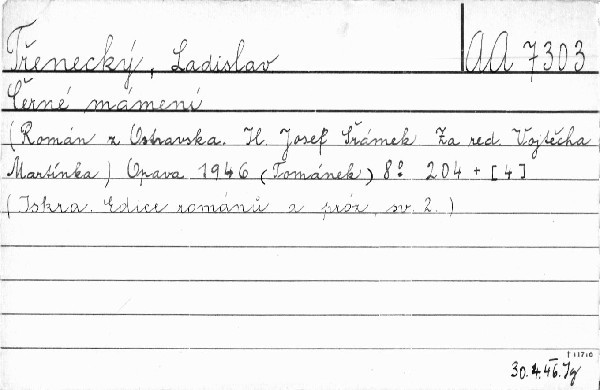 Třenecký, Ladislav AA 7303
Černé mámení
(Román z Ostravska. Il. Josef Sřámek Za red. Vojtěcha
Martínka) Opava 1946 (Tománek) 8° 204 + [4]
(Iskra. Edice románů a próz, sv. 2.)
T 11710
30.4.46.